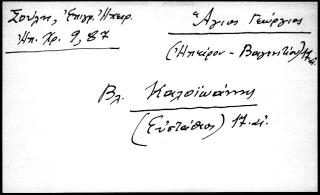 Σούλη, Ἐπιγρ. Ἠπείρ.
Ἠπ. Χρ. 9, 87
Ἅγιος Γεώργιος
(Ἠπείρου - Βαγενιτίου) 17 αἰ.
Βλ. Καλοϊωάννης
(Εὐστάθιος) 17. αἰ.